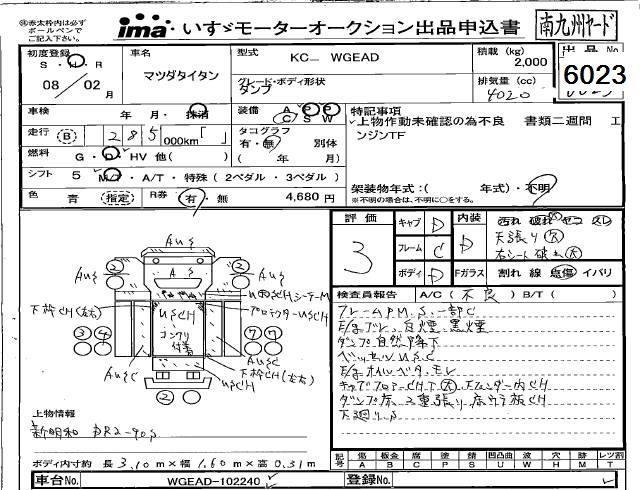 ㊟赤太枠内は必ず
ボールペンで
ご記入下さい。
ima いすゞモーターオークション出品申込書
南九州ヤード
初度登録
S・H・R
08/02月
車名
マツダタイタン
型式
KC- WGEAD
グレード・ボディ形状
ダンプ
積載 (kg)
2,000
排気量 (cc)
4020
出品No
6023
車検
年 月・抹消
装備 A P P
C S W
特記事項
上物作動未確認の為不良 書類二週間 エ
ンジンTF
走行 B 285 000km「 」
タコグラフ
有・無 別体
( 年 月)
燃料 G・D・HV 他( )
シフト 5 M/T・A/T・特殊(2ペダル・3ペダル)
色 青 指定 R券 有・無 4,680円
架装物年式:( 年式)・不明
※不明の場合は、不明に○をする。
評価
3
キャブ D
フレーム C
ボディ D
内装
D
汚れ 破れ ヤコ スレ
天張り(大)
右シート破れ(大)
Fガラス 割れ 線 点傷 イバリ
検査員報告 A/C(不良) B/T( )
フレームAPM.S.一部C
E/gブレ、白煙、黒煙
ダンプ自然降下
ベッセルUSC
E/gオイルベタ、モレ
キャブフロアーCH下(大)、Fフェンダー内CH
ダンプ床、2重張り、床ウラ板CH
下廻り.S
AUS
②
AUS
A S
②
AUS
下枠CH(左右)
USCH
コンクリ
付着
③ ④
⑦ ⑦
プロテクターUSCH
AUSC
AUSC
下枠CH(左右)
USCH
②
上物情報
新明和 DR2-90S
ボディ内寸約 長3.10m×幅1.60m×高0.31m
記号 傷 板金 腐 凹 塗 錆 凹凸曲 波 穴 跡 レツ割
A B C P S U W H M T
車台No. WGEAD-102240
登録No.